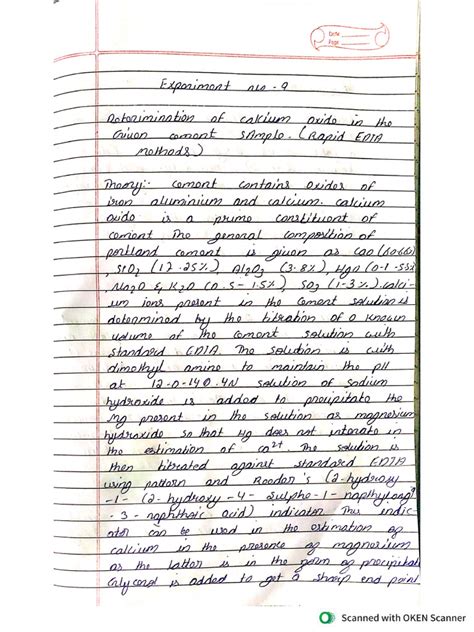 Date
Page
Experiment no - 9
Determination of calcium oxide in the
Given cement sample. (Rapid EDTA
methods)
Theory:- cement contains oxides of
iron aluminium and calcium. calcium
oxide is a prime constituent of
cement The general composition of
portland cement is given as CaO (60-66%)
, SiO2 (17-25%) Al2O3 (3-8%), MgO (0.1-5.5%)
, Na2O & K2O (0.5-1.5%), SO3 (1-3%). calci-
um ions present in the cement solution is
determined by the titration of a known
volume of the cement solution with
standard EDTA. The solution is with
dimethyl amine to maintain the pH
at 12-0-140.4N solution of sodium
hydroxide is added to precipitate the
Mg present in the solution as magnesium
hydroxide so that Mg does not in
the estimation of Ca2+. The solution is
then titrated against standard EDTA
using pattern and Reeder's (2-hydroxy
-1- (2-hydroxy-4-sulpho-1-
-3- naphthoic acid) indicator This indic
ator can be used in the estimation of
calcium in the presence of magnesium
as the latter is in the form of precipitat
Glycerol is added to get a sharp end point
Scanned with OKEN Scanner